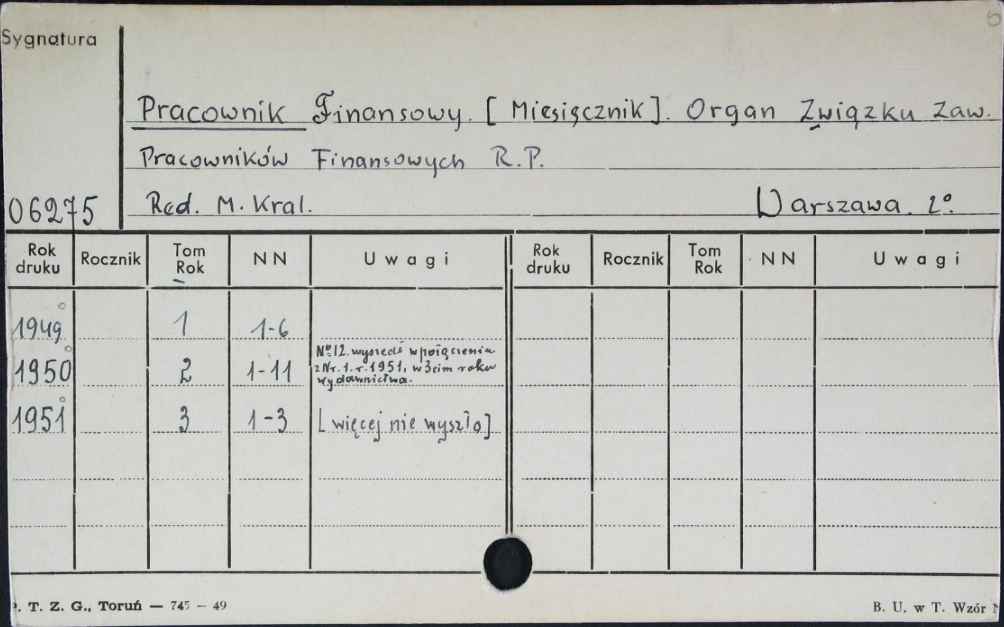 6
Sygnatura
Pracownik Finansowy. [Miesięcznik]. Organ Związku Zaw.
Pracowników Finansowych R.P.
06275 Red. M. Kral. Warszawa. 2°.
Rok druku Rocznik Tom Rok NN Uwagi Rok druku Rocznik Tom Rok NN Uwagi
1949 1 1-6
1950 2 1-11 No 12. wyszedł w połączeniu
z Nr. 1. r. 1951, w 3cim roku
wydawnictwa.
1951 3 1-3 [więcej nie wyszło]
. T. Z. G., Toruń — 745 — 49 B. U. w T. Wzór